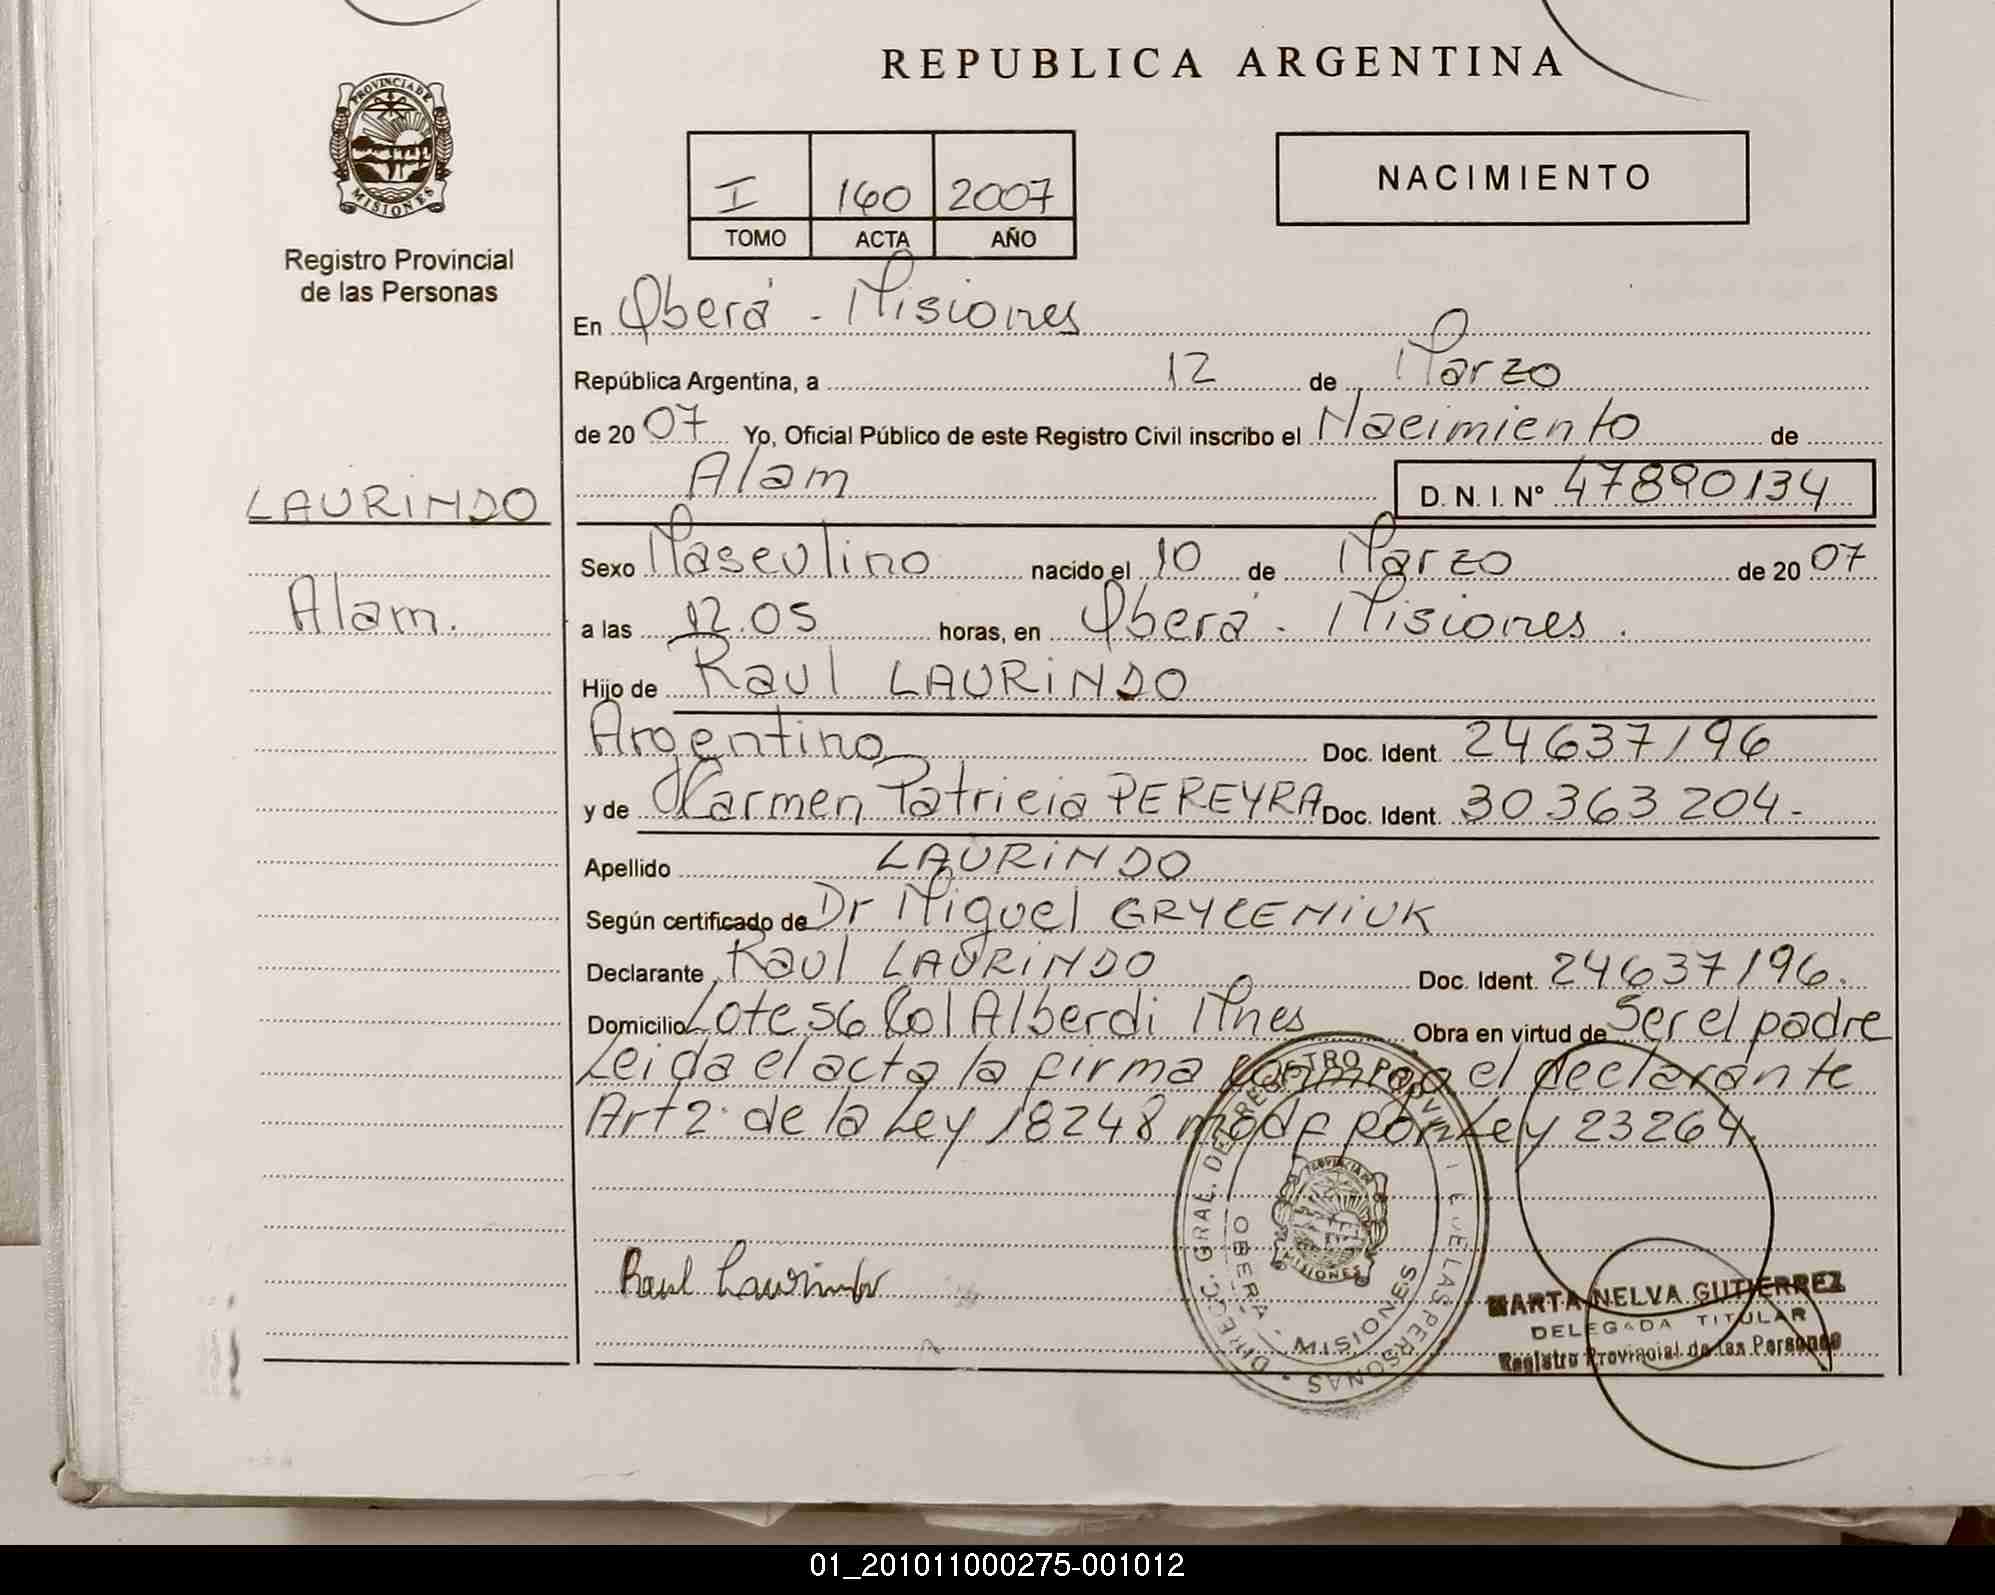 REPUBLICA ARGENTINA
PROVINCIA DE
MISIONES
Registro Provincial
de las Personas
I 160 2007
TOMO ACTA AÑO
NACIMIENTO
En Oberá - Misiones
República Argentina, a 12 de Marzo
de 2007 Yo, Oficial Público de este Registro Civil inscribo el Nacimiento de
Alam D. N. I. Nº 47890134
LAURINDO
Alam.
Sexo Masculino nacido el 10 de Marzo de 2007
a las 12.05 horas, en Oberá - Misiones.
Hijo de Raul LAURINDO
Argentino Doc. Ident. 24637196
y de Carmen Patricia PEREYRA Doc. Ident. 30363204-
Apellido LAURINDO
Según certificado de Dr Miguel GRYCENIUK
Declarante Raul LAURINDO Doc. Ident. 24637196.
Domicilio Lote 56 Col Alberdi Mnes Obra en virtud de Ser el padre
Leida el acta la firma conmigo el declarante
Art 2 de la Ley 18248 modf por Ley 23264.
Raul Laurindo
DIRECC. GRAL. DE REGISTRO PROVINCIAL DE LAS PERSONAS
PROVINCIA DE
MISIONES
OBERA - MISIONES
MARTA NELVA GUTIERREZ
DELEGADA TITULAR
Registro Provincial de las Personas
01_201011000275-001012